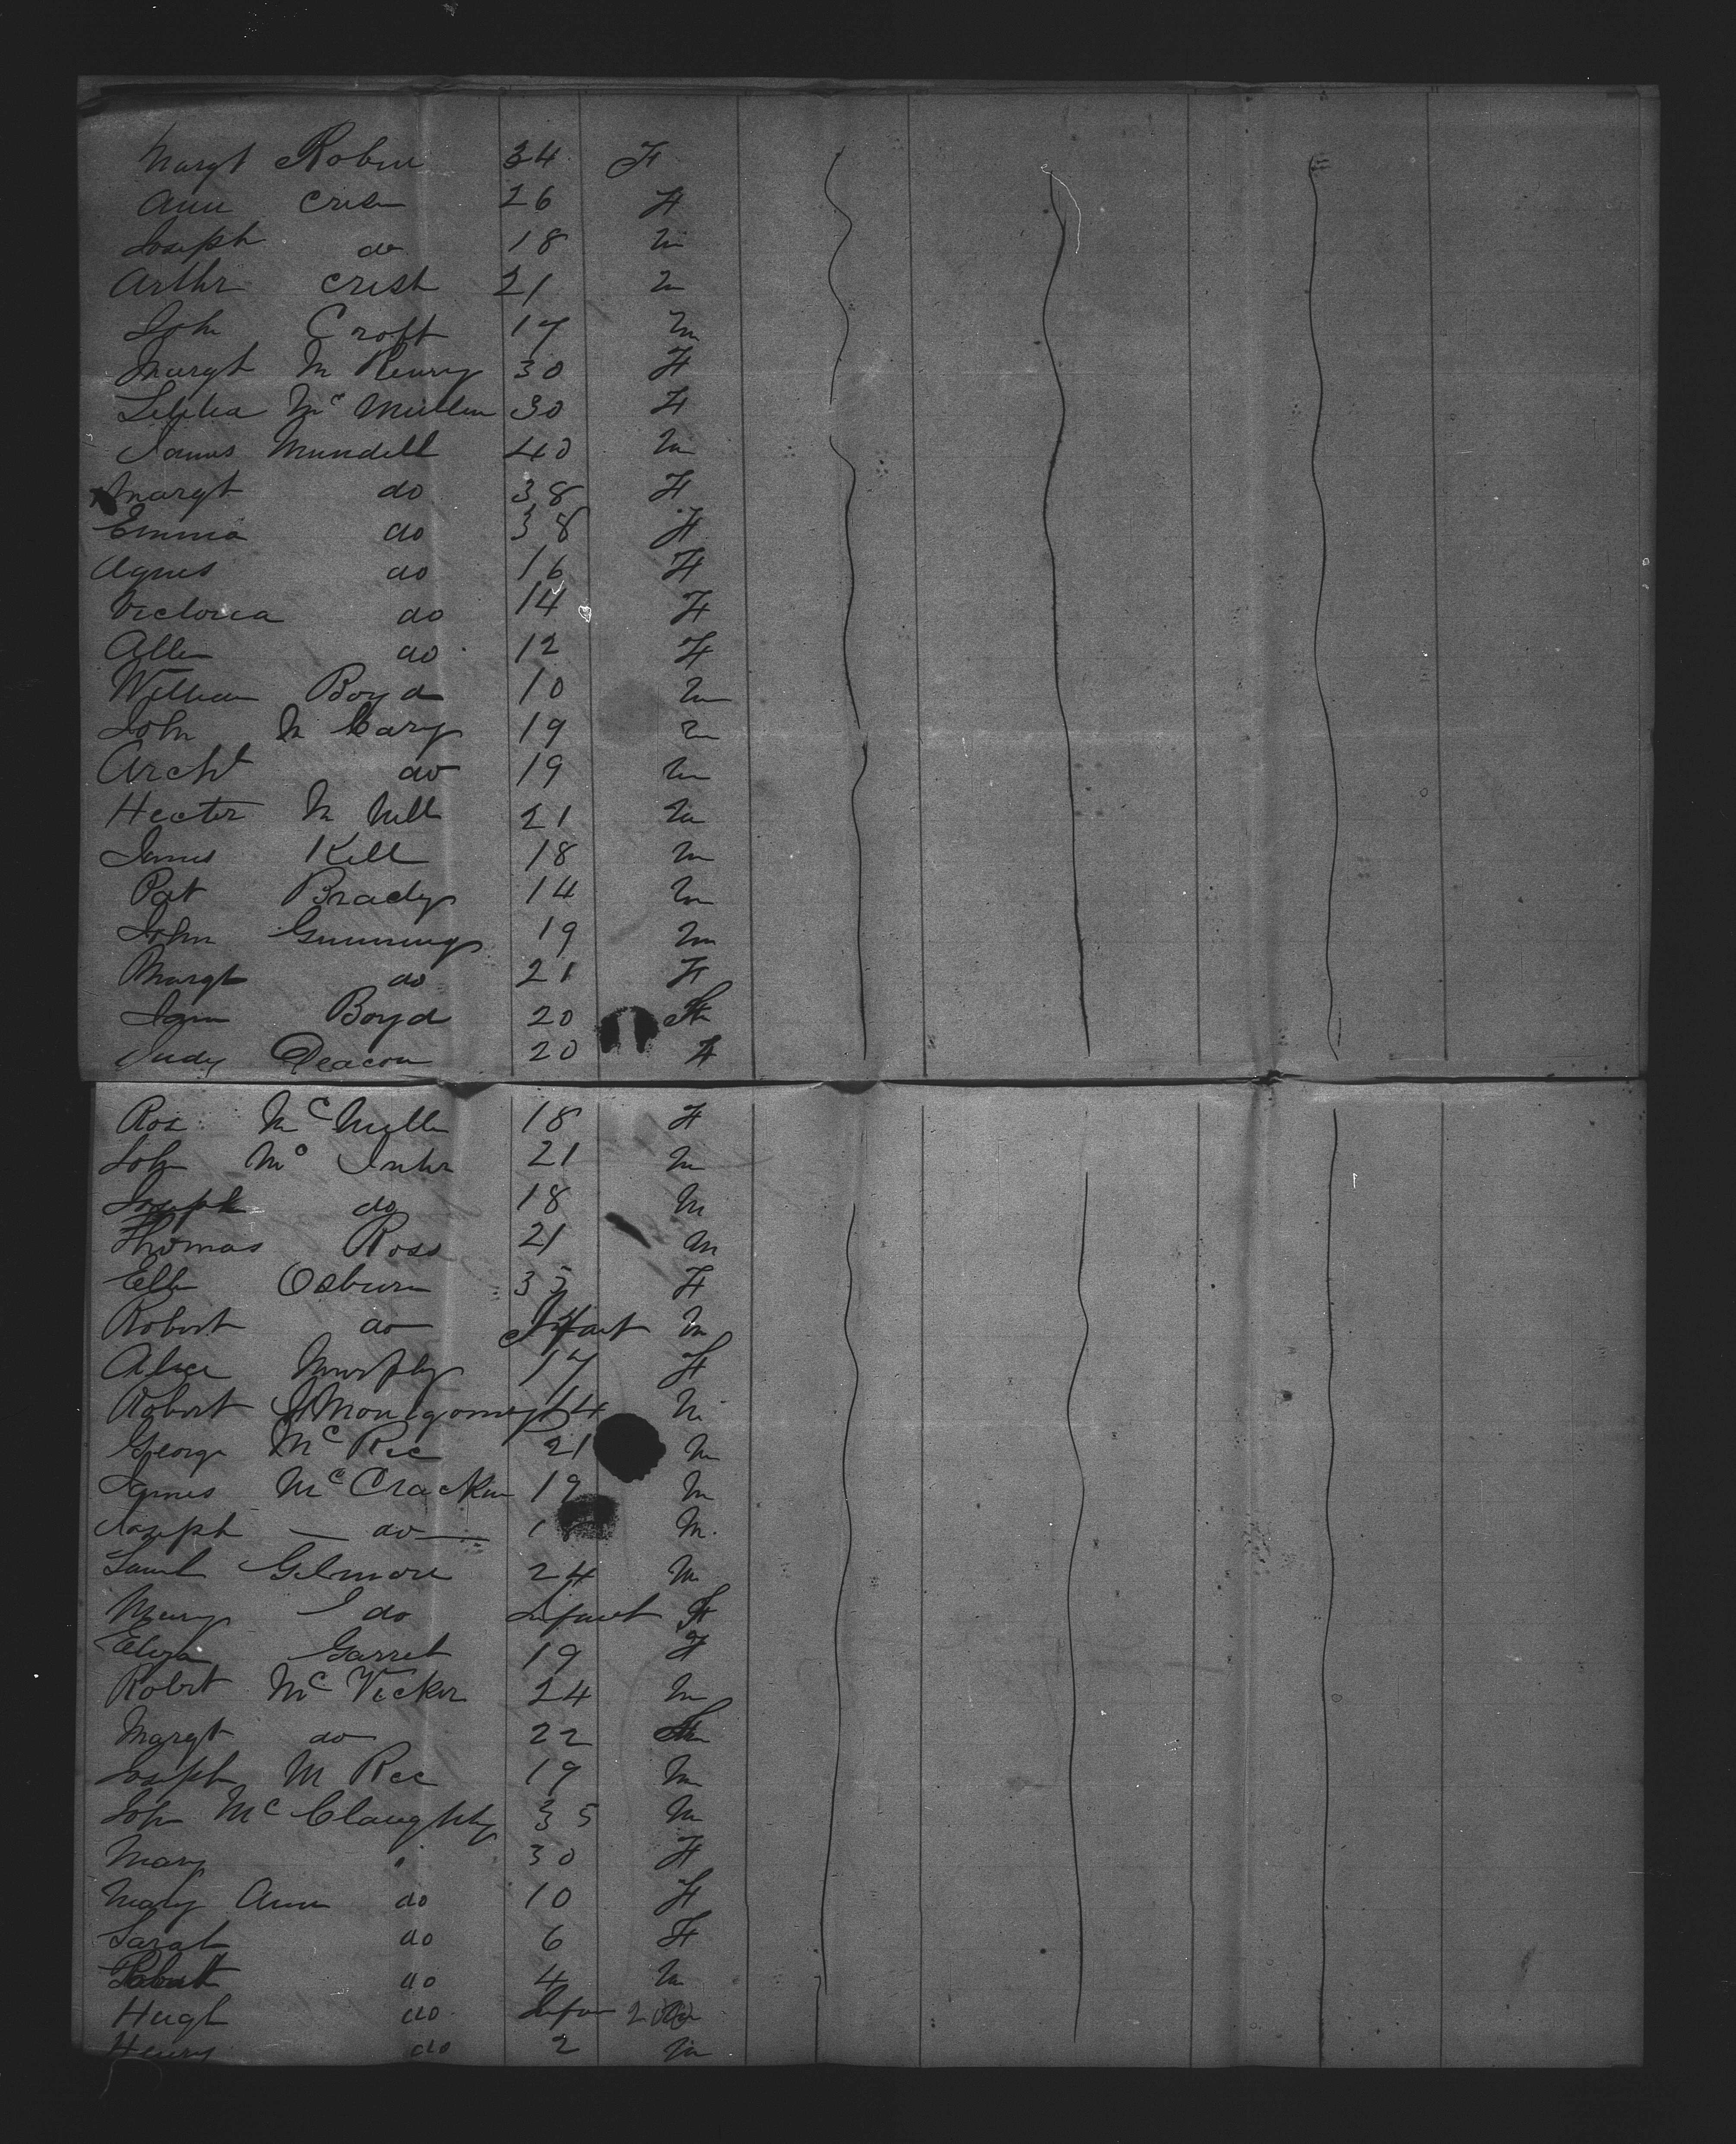 Margt Robin 34 F
Ann 26 F
Joseph do 18 M
Arthr Crish 21 M
John Croft 17 M
Margt Mc Henry 30 F
Letitia Mc Mullen 30 F
James Mundell 40 M
Margt do 38 F
Emma do 38 F
Agnes do 16 F
Victoria do 14 F
Allen do 12 F
William Boyd 10 M
John Mc Cary 19 M
Archt do 19 M
Hector Mc Neill 21 M
James Kell 18 M
Pat Brady 14 M
John Gunning 19 M
Margt do 21 F
Boyd 20
Judy Deacon 20 F
Rose Mc 18 F
John Mc 21 M
Joseph do 18 M
Thomas Ross 21 M
Ellen Osburn 35 F
Robert do Infant M
Alice Murphy 17 F
Robert J Montgomery 14 M
George Mc Kee 21 M
James McCracken 19 M
Joseph do M.
Saml Gilmore 24 M
Mary J do Infant F
Eliza Garret 19 F
Robert Mc Vicker 24 M
Margt do 22
Joseph M Kee 19 M
John Mc Claughty 35 M
Mary " 30 F
Mary Ann do 10 F
Sarah do 6 F
Robert do 4 M
Hugh do Infan 200
Henry do 2 M